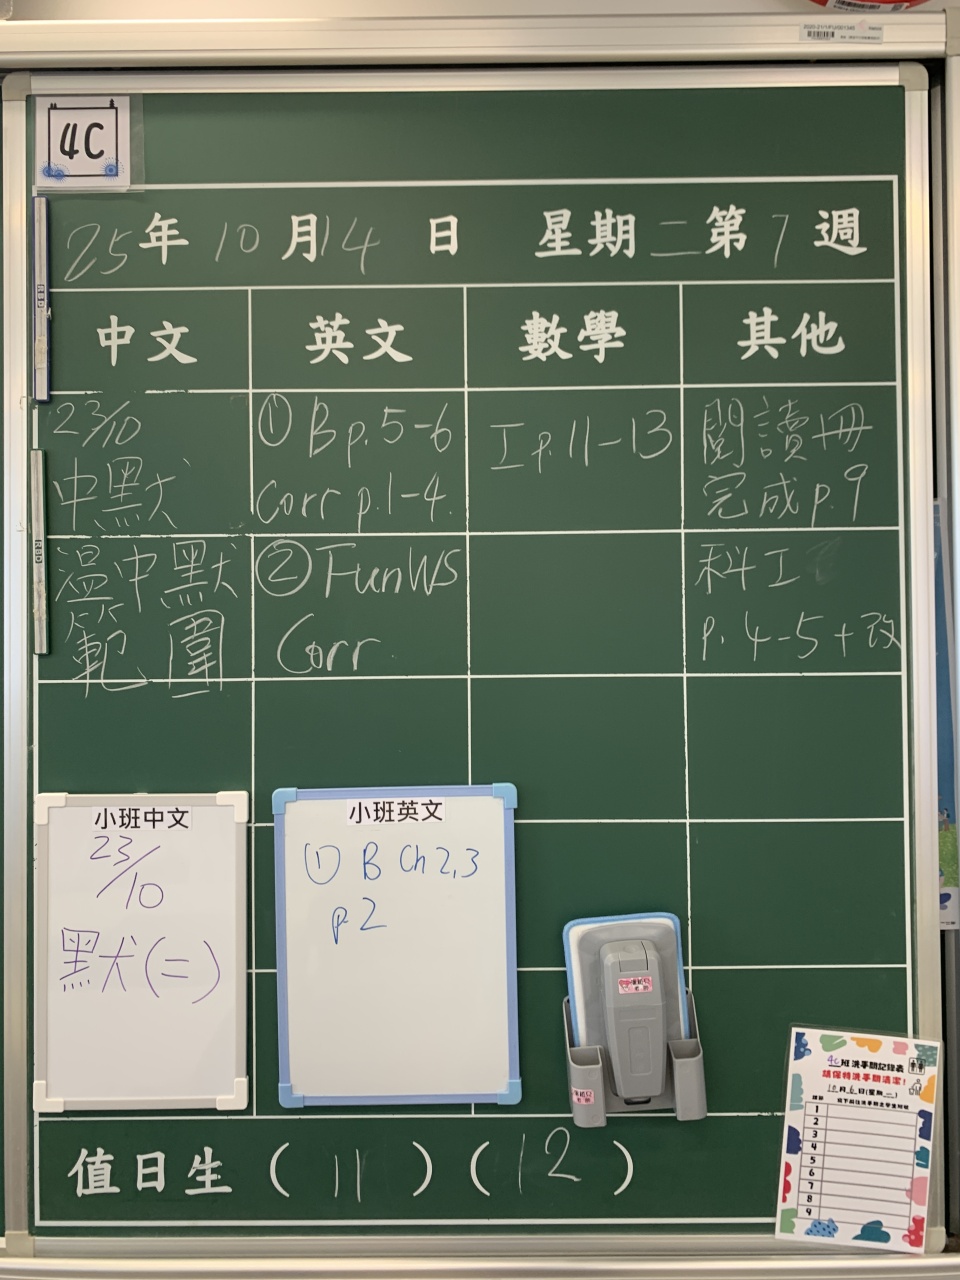 4C
25年 10月14日 星期二第7週
中文 英文 數學 其他
23/10
中默
① B p.5-6
Corr p.1-4.
I p.11-13
閱讀冊
完成p.9
溫中默
範圍
② Fun WS
Corr.
科工
p.4-5+改
小班中文
23/10
默(二)
小班英文
① B Ch 2,3
p.2
4C班洗手間記錄表
請保持洗手間清潔!
10月6日(星期一)
1
2
3
4
5
6
7
8
9
值日生(11)(12)